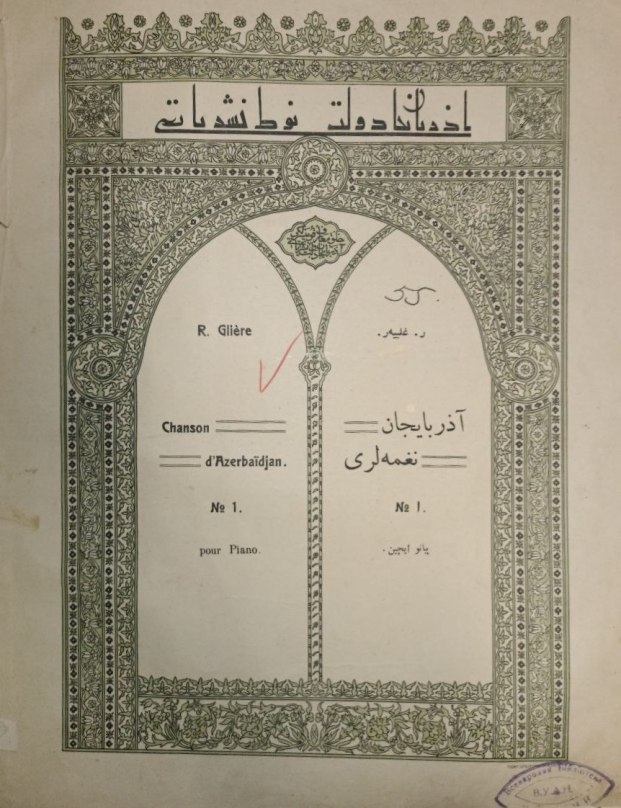 اذربایجان دولت نوط نشریاتی
R. Glière
Chanson
d'Azerbaïdjan.
№ 1.
pour Piano.
ر. غلییهر.
آذربایجان
نغمه‌لری
№ ۱.
پیانو ایچین.